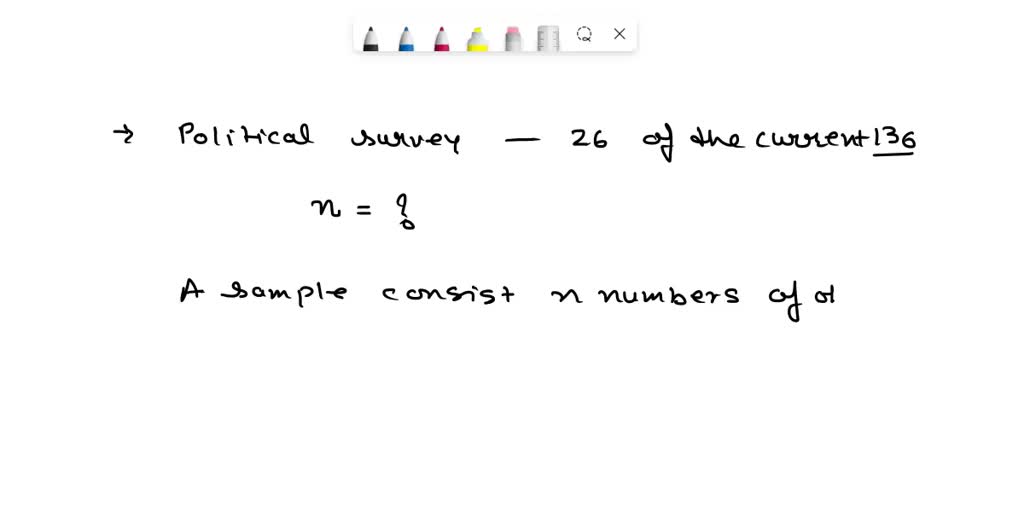 → Political survey — 26 of the current 136
n = ?
A sample consist n numbers of d